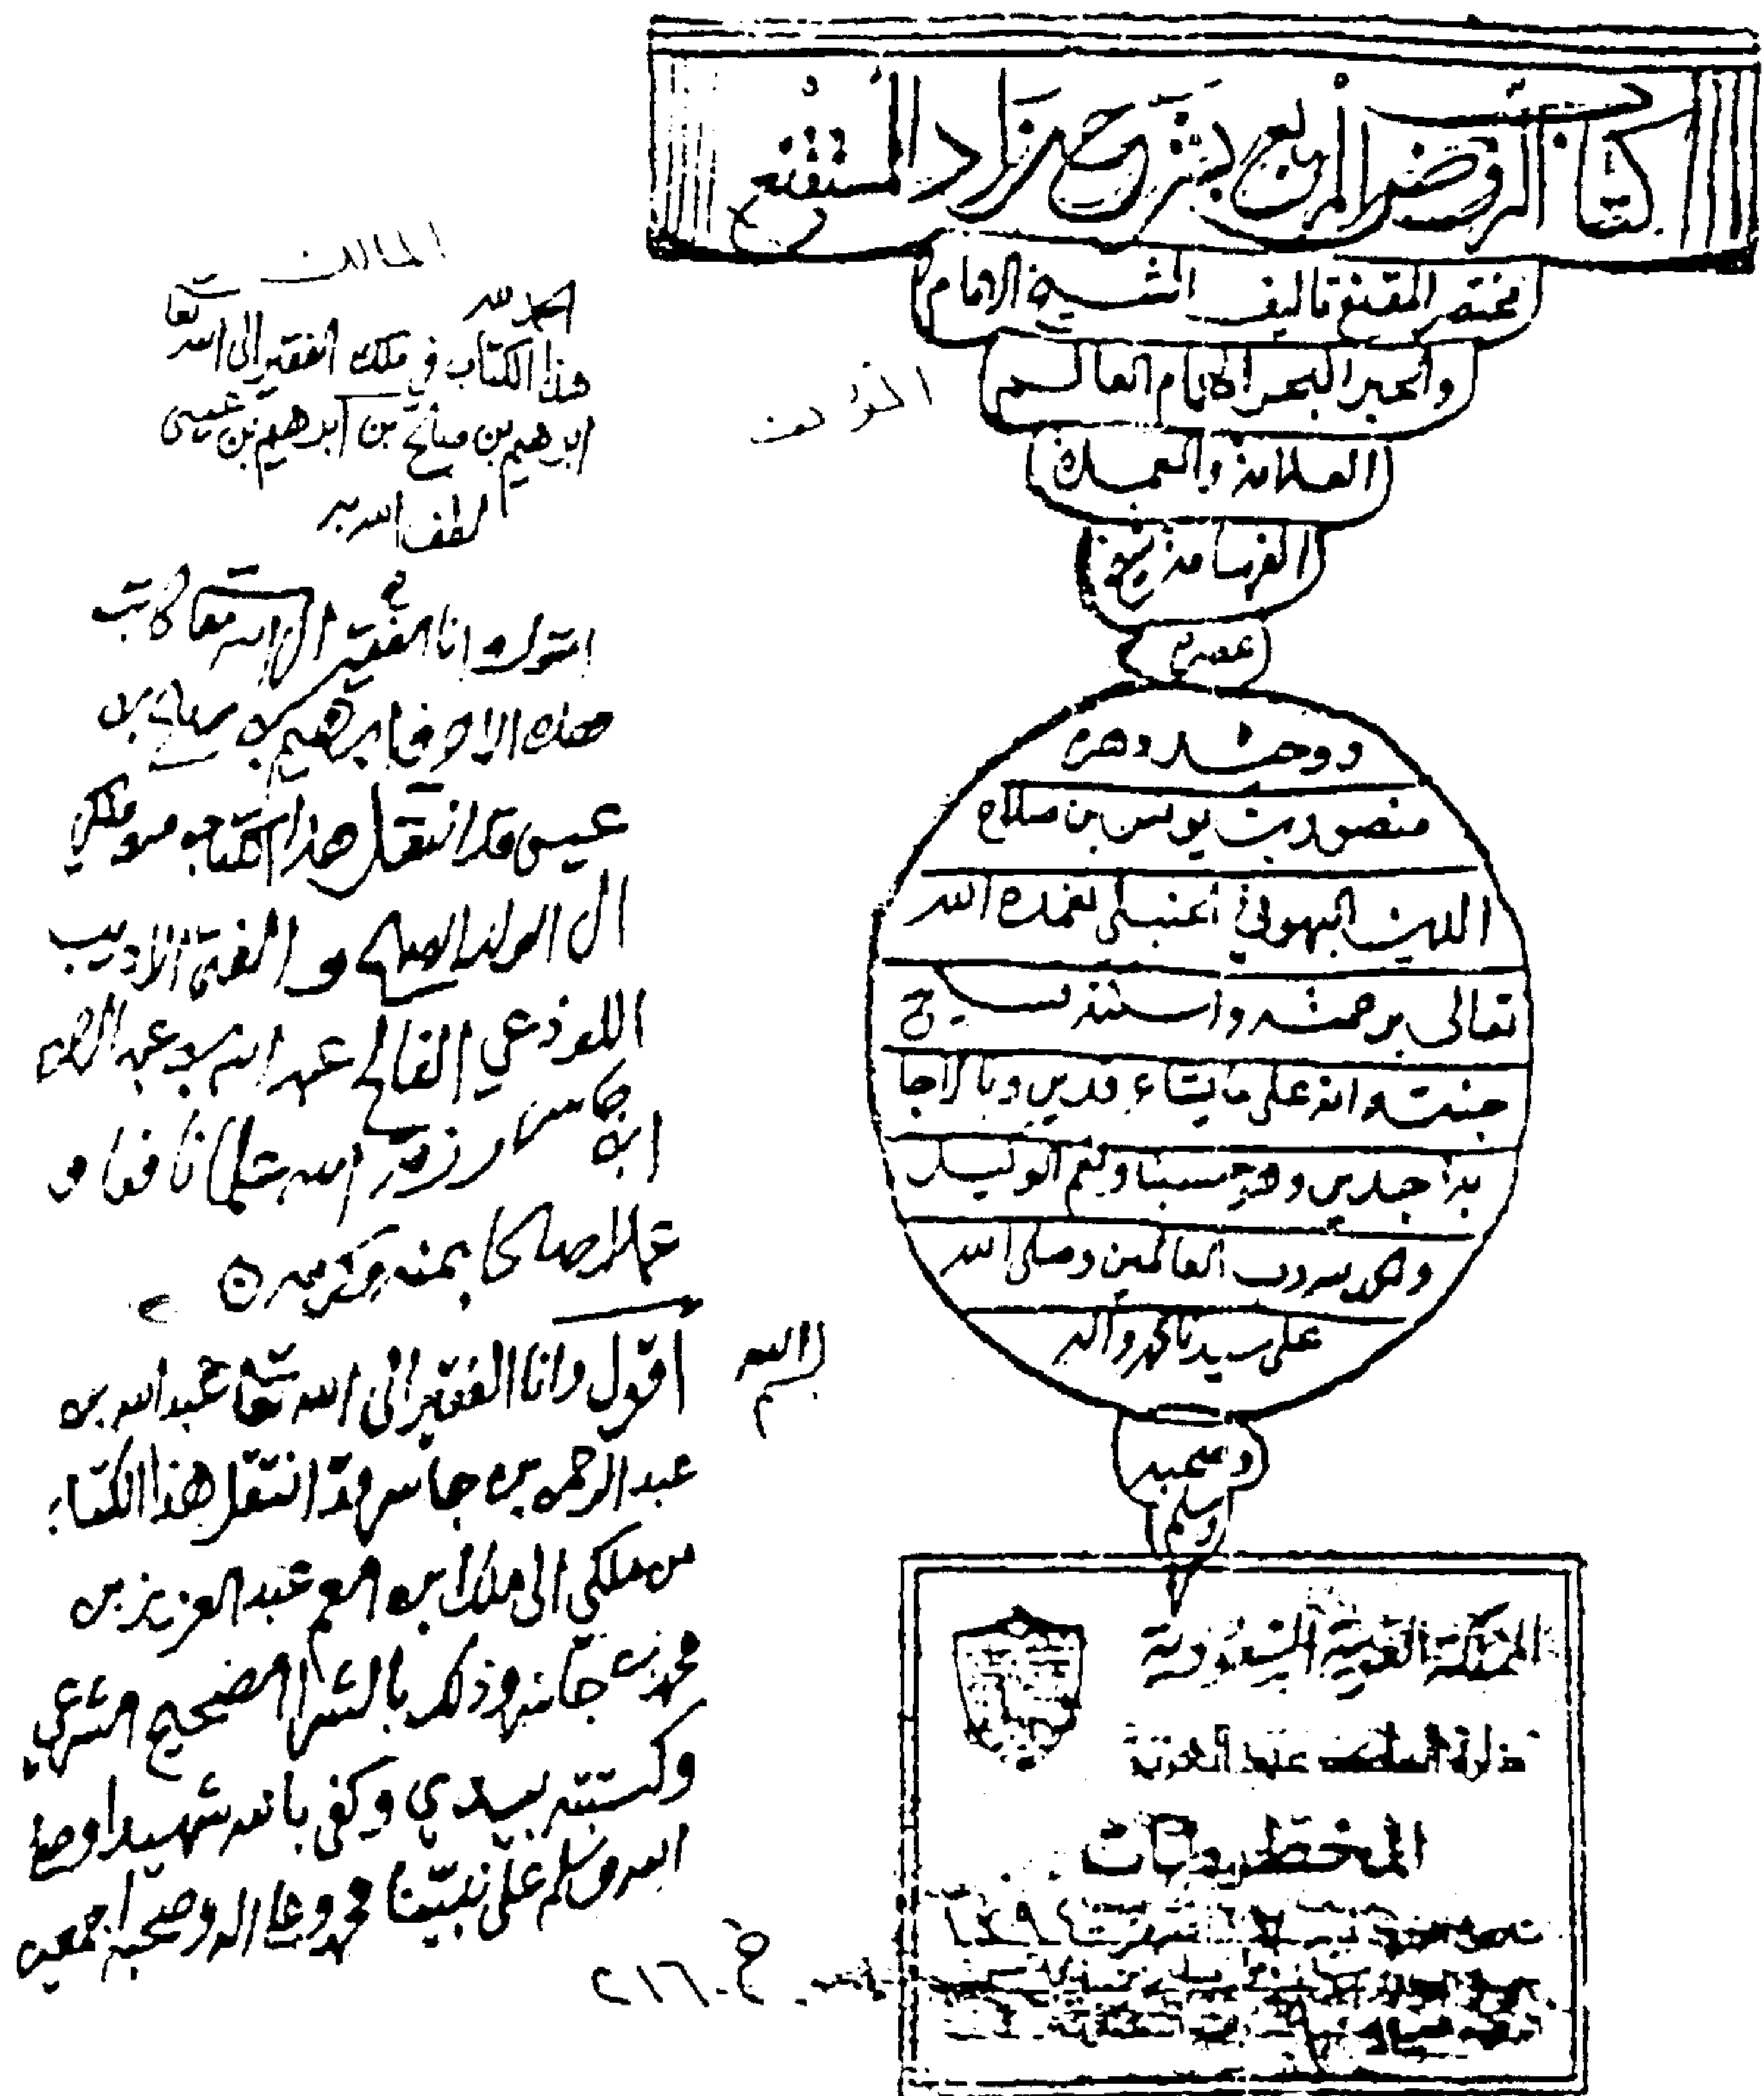 كتاب الروض المربع بشرح زاد المستقنع
مختصر المقنع تاليف الشيخ الامام
والحبر البحر الامام العالم
العلامة والعمدة
الفهامة شيخ
عصره
ووحيد دهره
منصور بن يونس بن صلاح
الدين البهوتي الحنبلي تغمده الله
تعالى برحمته واسكنه فسيح
جنته انه على ما يشاء قدير وبالاجا
بة جدير وهو حسبنا ونعم الوكيل
والحمد لله رب العالمين وصلى الله
على سيدنا محمد واله
وصحبه
وسلم
المملكة العربية السعودية
المخطوطات
الحمد لله
هذا الكتاب في ملك الفقير الى الله تعا
ابرهيم بن صالح بن ابرهيم بن عيسى
لطف الله به
اقول وانا الفقير الى الله تعا كاتب
هذه الاحرف ابرهيم بن صالح بن
عيسى قد انتقل هذا الكتاب من ملكي
الى الولد الصالح والفتى الاديب
اللوذعي الفالح عبد الله بن عبد الرحمن
ابن جاسر رزقه الله علما نافعا و
عملا صالحا بمنه وكرمه
بسم الله
اقول وانا الفقير الى الله تعا عبد الله بن
عبد الرحمن بن جاسر قد انتقل هذا الكتاب
من ملكي الى ملك ابن العم عبد العزيز بن
محمد بن جاسر وذلك بالشرا الصحيح الشرعي
وكتبته بيدي وكفى بالله شهيدا وصلى
الله وسلم على نبينا محمد وعلى اله وصحبه اجمعين
خ ٢١٦